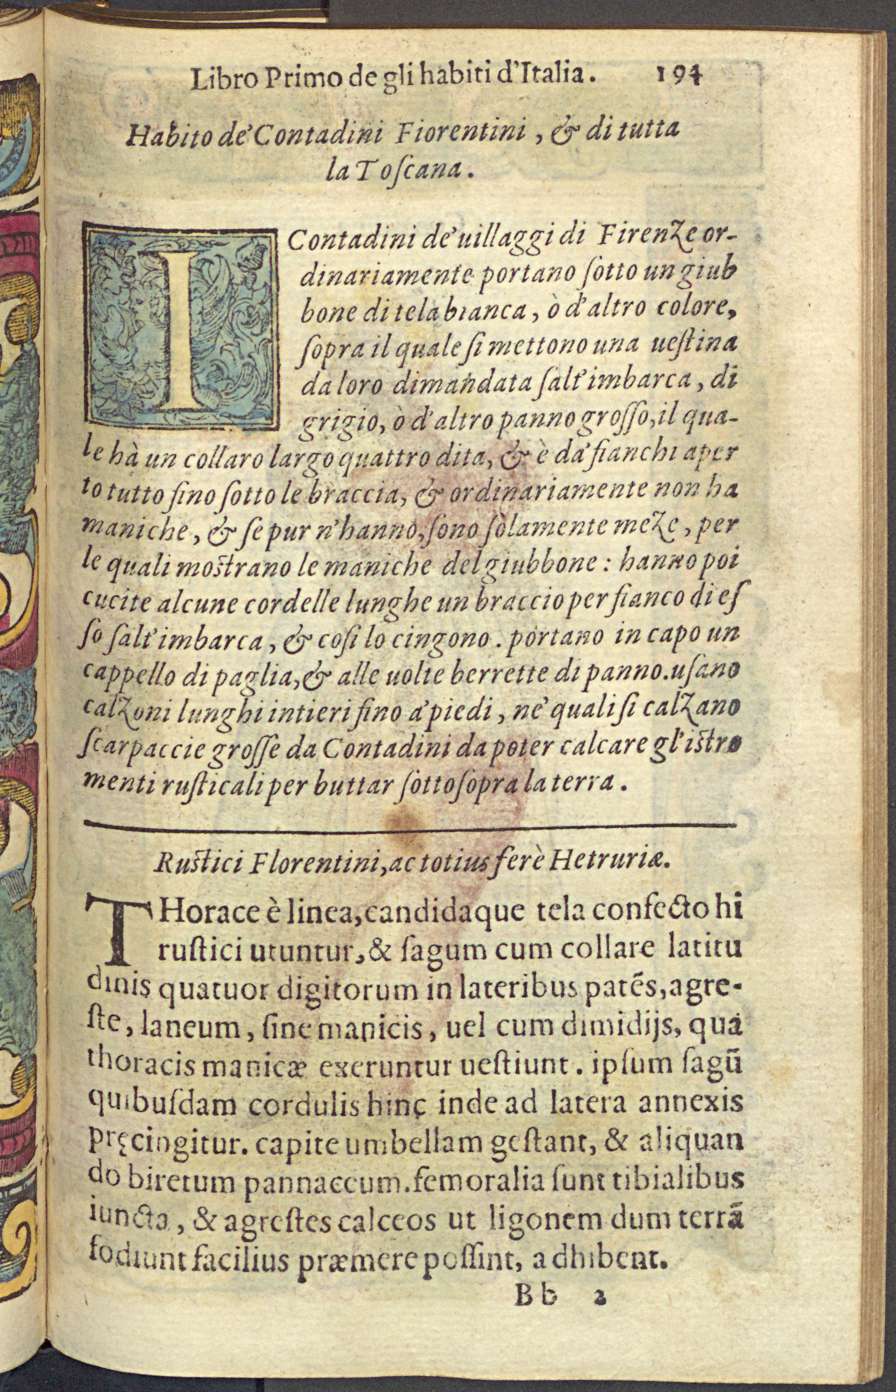 Libro Primo de gli habiti d'Italia. 194
Habito de' Contadini Fiorentini, & di tutta
la Toſcana.
I Contadini de' uillaggi di Firenze or-
dinariamente portano ſotto un giub
bone di tela bianca, ò d'altro colore,
ſopra il quale ſi mettono una ueſtina
da loro dimandata ſalt'imbarca, di
grigio, ò d'altro panno groſſo, il qua-
le hà un collaro largo quattro dita, & è da' fianchi aper
to tutto ſino ſotto le braccia, & ordinariamente non ha
maniche, & ſe pur n'hanno, ſono ſolamente meze, per
le quali moſtrano le maniche del giubbone: hanno poi
cucite alcune cordelle lunghe un braccio per fianco di eſ
ſo ſalt'imbarca, & coſi lo cingono. portano in capo un
cappello di paglia, & alle uolte berrette di panno. uſano
calzoni lunghi intieri fino a' piedi, ne' quali ſi calzano
ſcarpaccie groſſe da Contadini da poter calcare gl'iſtro
menti ruſticali per buttar ſottoſopra la terra.
Ruſtici Florentini, ac totius ferè Hetruriæ.
THorace è linea, candidaque tela confecto hi
ruſtici utuntur, & ſagum cum collare latitu
dinis quatuor digitorum in lateribus patẽs, agre-
ſte, laneum, ſine manicis, uel cum dimidijs, qua
thoracis manicæ exeruntur ueſtiunt. ipſum ſagũ
quibuſdam cordulis hinc inde ad latera annexis
pręcingitur. capite umbellam geſtant, & aliquan
do biretum pannaceum. femoralia ſunt tibialibus
iuncta, & agreſtes calceos ut ligonem dum terrã
fodiunt facilius præmere poſſint, adhibent.
Bb 2